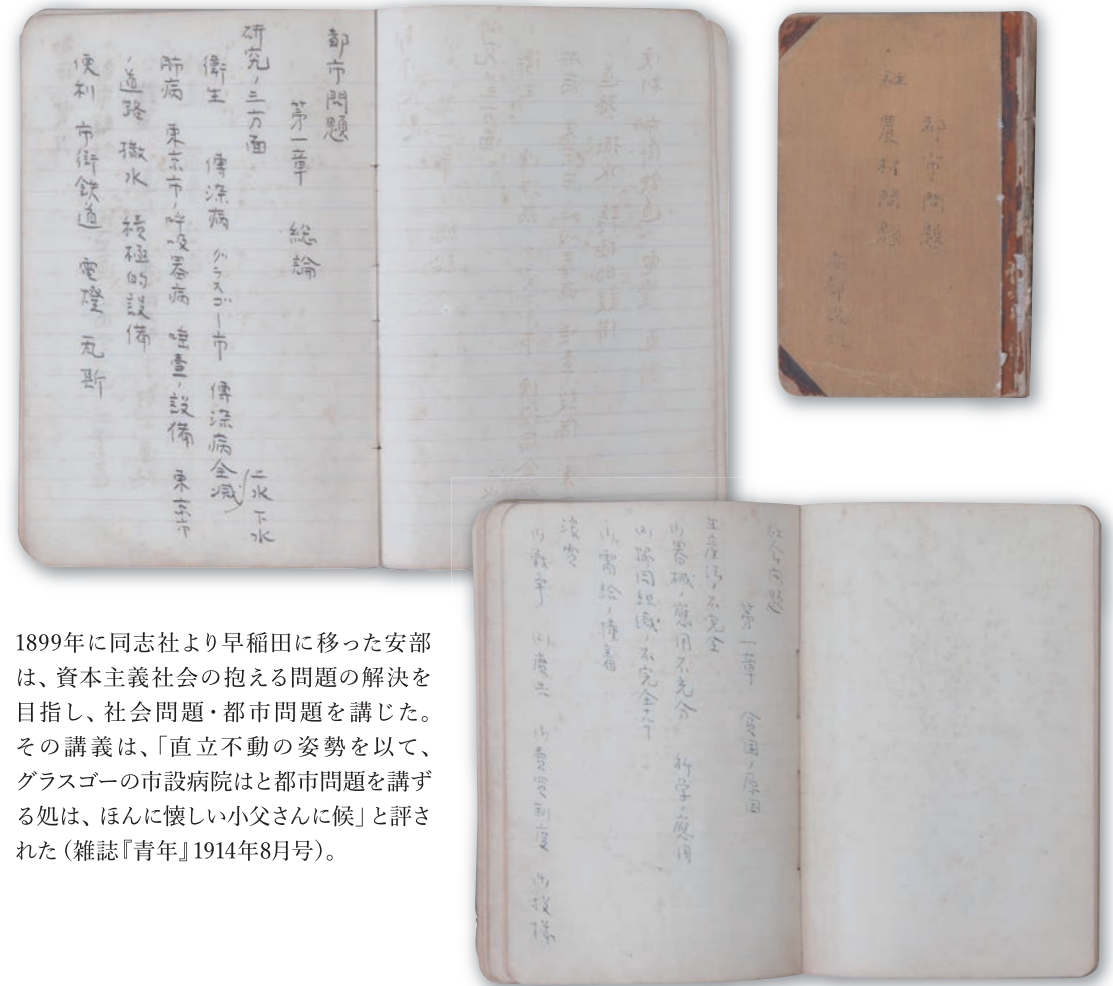 都市問題
第一章 総論
研究ノ三方面
衛生 傳染病 グラスゴー市 傳染病全滅 上水 下水
肺病 東京市ノ呼吸器病 唾壷ノ設備 東京市
ノ道路 撒水 積極的設備
便利 市街鉄道 電燈 瓦斯
都市問題
社
農村問題
社会問題
第一章 貧困ノ原因
生産法ノ不完全
器械ノ應用不充分 科学ノ應用
協同組織ノ不完全
需給ノ撞着
浪費
戦争 売買制度
1899年に同志社より早稲田に移った安部
は、資本主義社会の抱える問題の解決を
目指し、社会問題・都市問題を講じた。
その講義は、「直立不動の姿勢を以て、
グラスゴーの市設病院はと都市問題を講ず
る処は、ほんに懐しい小父さんに候」と評さ
れた（雑誌『青年』1914年8月号）。